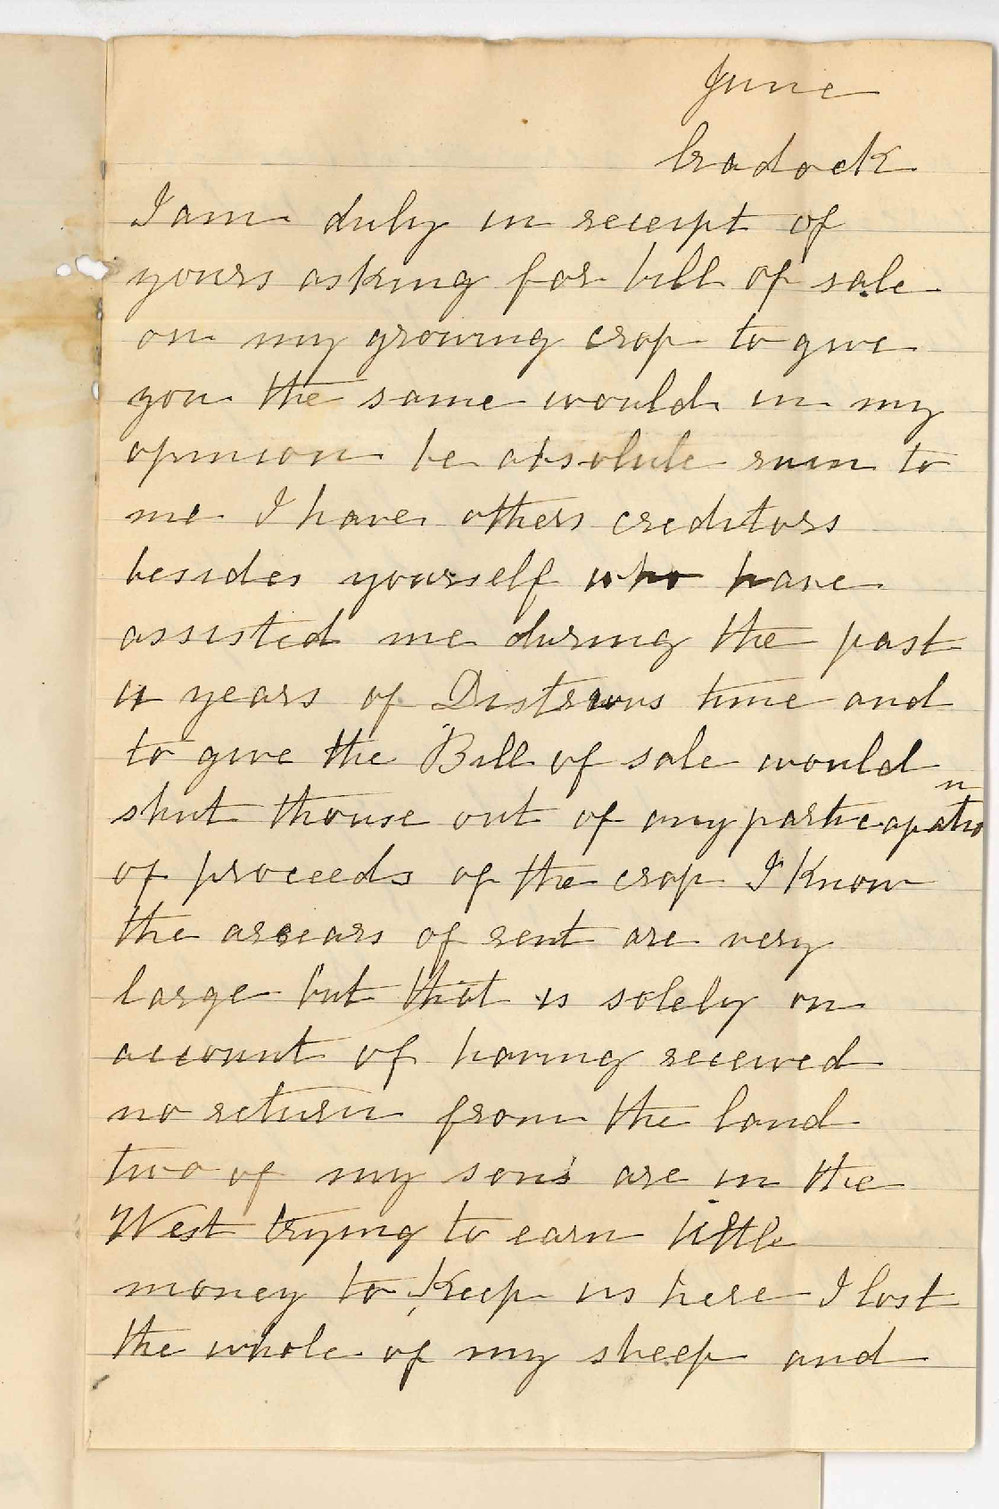 June
Cradock
I am duly in receipt of
yours asking for bill of sale
on my growing crop to give
you the same would in my
opinion be absolute ruin to
me I have others creditors
besides yourself who have
assisted me during the past
years of Distrous time and
to give the Bill of sale would
shut thouse out of any particapation
of proceeds of the crop I Know
the arrears of rent are very
large but that is solely on
account of having received
no return from the land
two of my sons are in the
West trying to earn little
money to Keep us here I lost
the whole of my sheep and